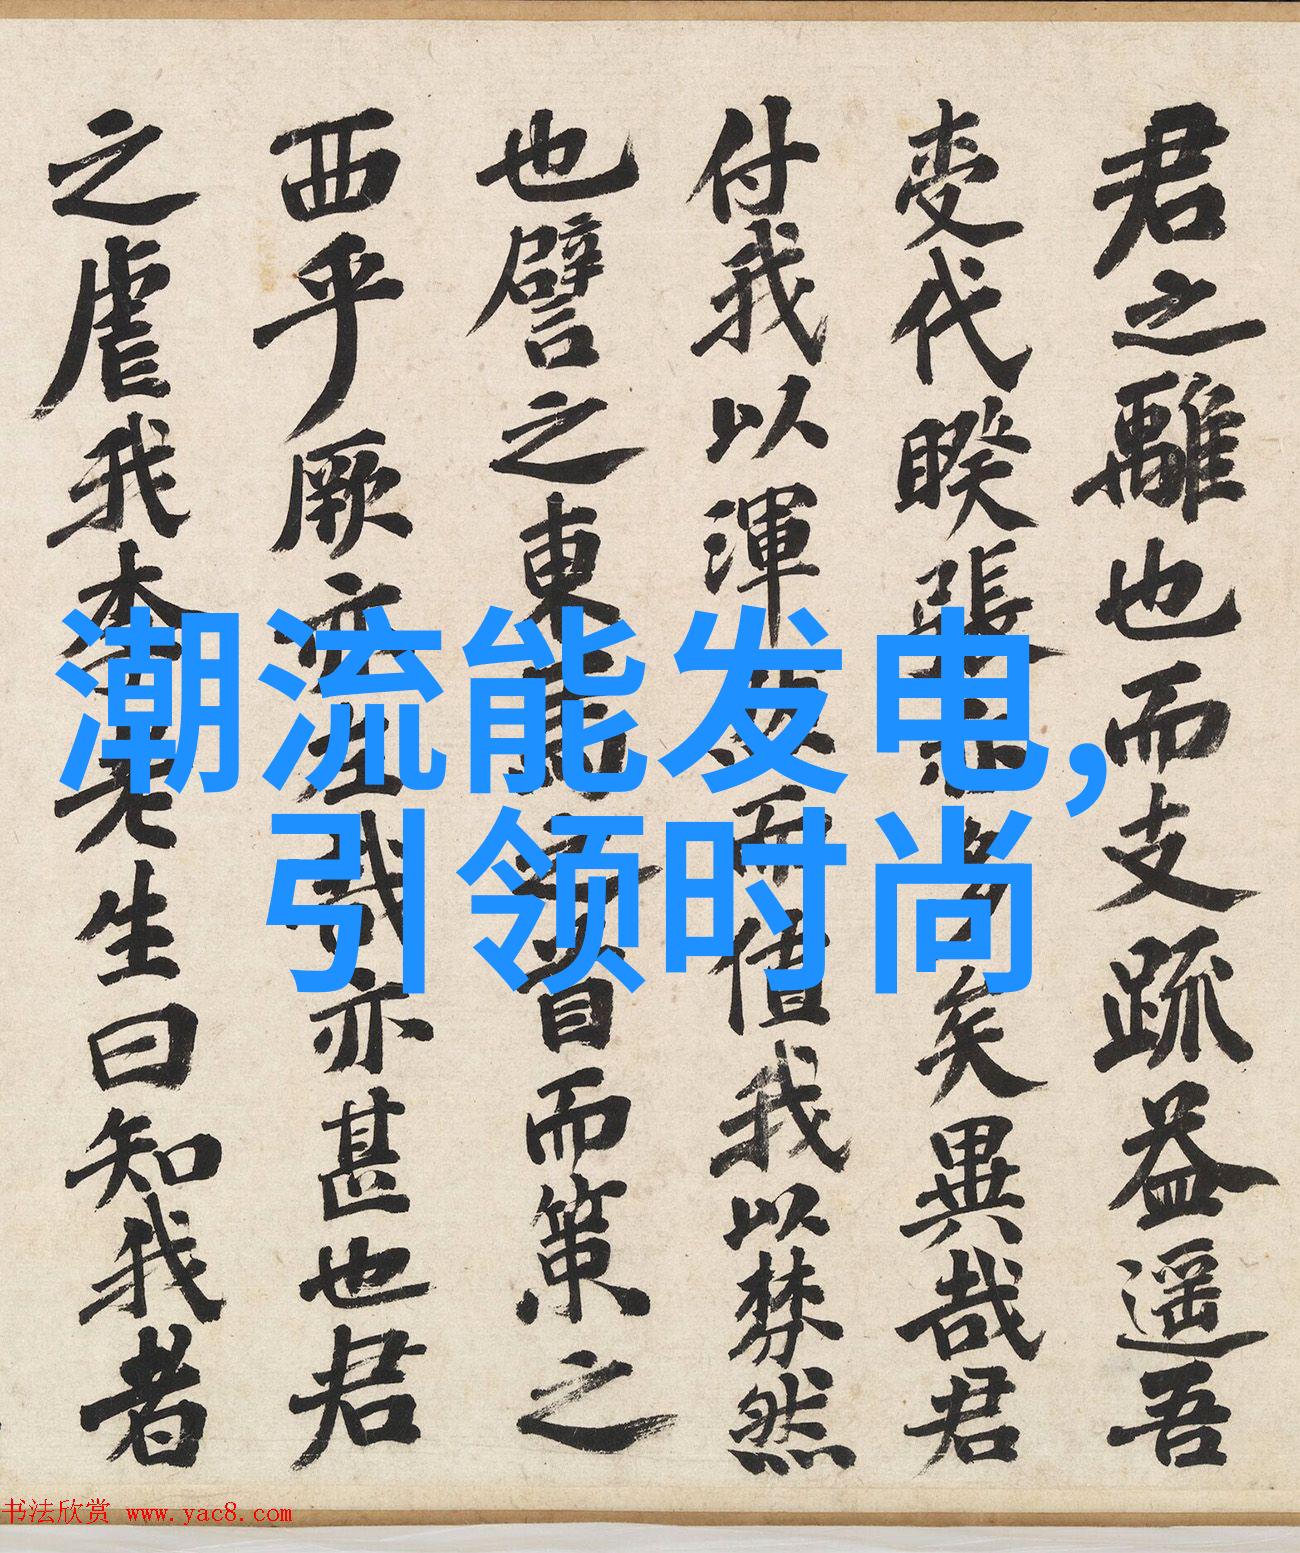 潮流能发电,
引领时尚
君之離也而支疏益遥吾
代睽張多矣異哉君
付我以渾而借我以棼然
也譬之東馬之首而策之
西乎厥亦左哉亦甚也君
之虐我李老先生曰知我者
书法欣赏 www.yac8.com